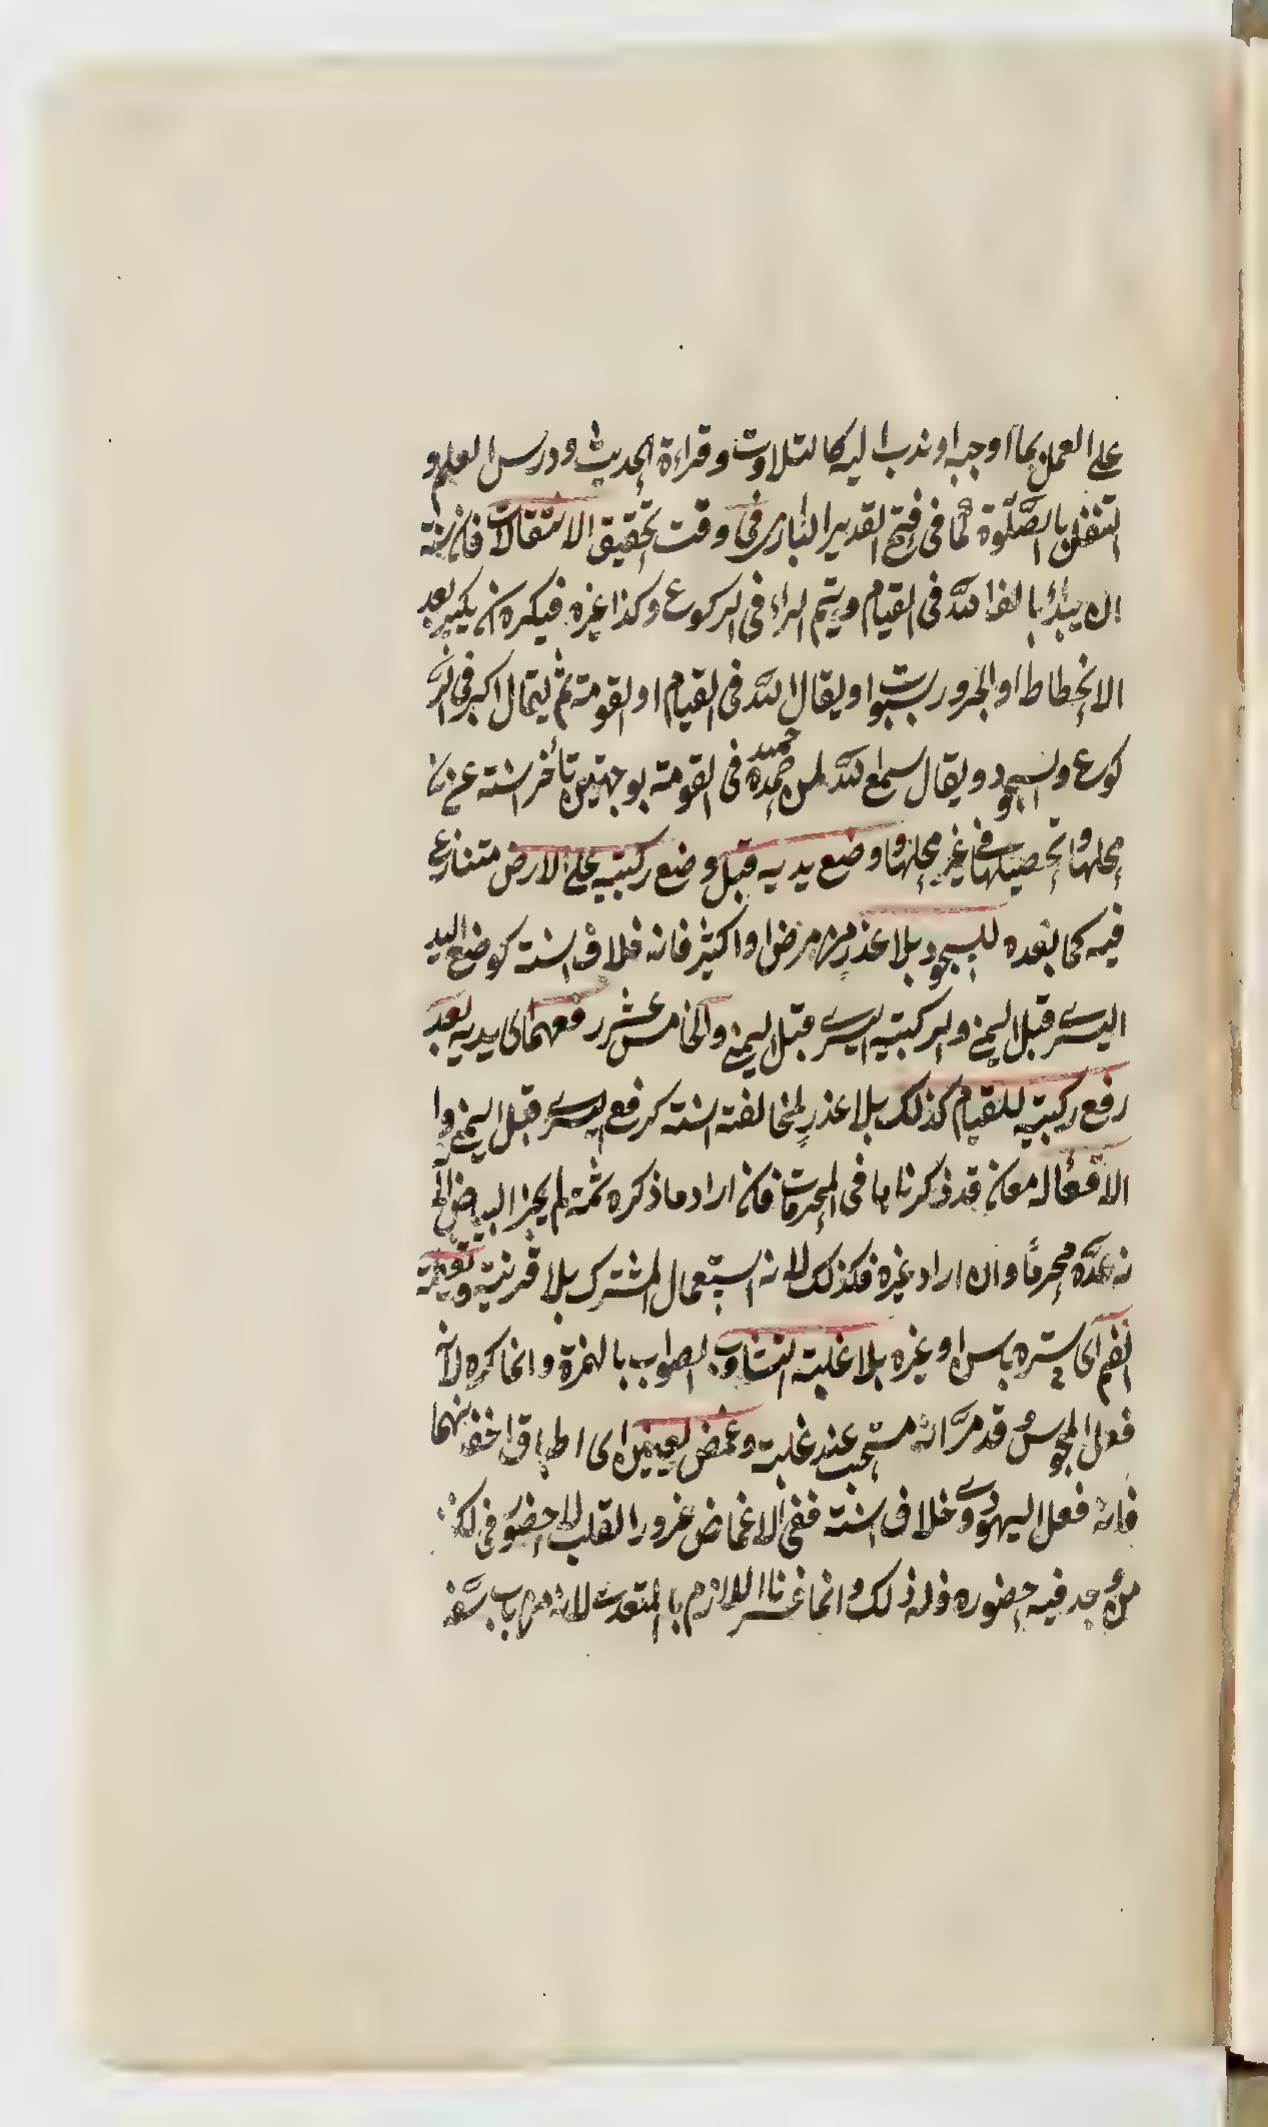 على العمل بما اوجبه او ندب اليه كالتلاوت وقراءة الحديث ودرس العلم و
التنفل بالصلوة كما فى فتح القدير الثانى فى وقت تحقيق الانتقالات فان سنته
ان يبدأ بالفا لله فى القيام ويتم الراء فى الركوع وكذا غيره فيكره ان يكبر بعد
الانحطاط او الخرور او يقال الله فى القيام او القومة ثم يقال اكبر فى الر
كوع والسجود ويقال سمع الله لمن حمده فى القومة بوجهتين تأخر السنة عن
محلها وتحصيلها فى غير محلها ووضع يديه قبل وضع ركبتيه على الارض متنازع
فيه كما بعده للسجود بلا عذر من مرض او اكثر فانه خلاف السنة كوضع اليد
اليسرى قبل اليمنى والركبتيه اليسرى قبل اليمنى والخامس عشر رفعهما اى يديه بعد
رفع ركبتيه للقيام كذلك بلا عذر لمخالفته السنة كرفع اليسرى قبل اليمنى وا
الافعاله معان قد ذكرناها فى المحرمات فان اراد ما ذكره ثمة لم يجز البعض لا
نه عده محرما وان اراد غيره فكذلك لانه استعمال المشترك بلا قرينة وتغطية
الفم اى ستره باس او غيره بلا غلبة التثاوب الصواب بالهمزة وانما كره لانه
فعل المجوس وقد مر انه مستحب عند غلبته وغمض العينين اى اطباق اجفنهما
فانه فعل اليهودى وخلاف السنة ففى الاغماض غرور القلب لا حضور فى لكن
من وجد فيه حضوره فله ذلك وانما فسرنا اللازم بالمتعدى لانه من باب